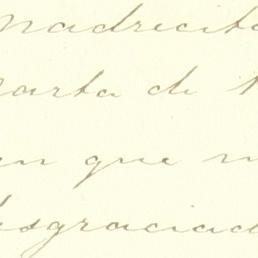 Madrecita
carta de
en que
desgraciad